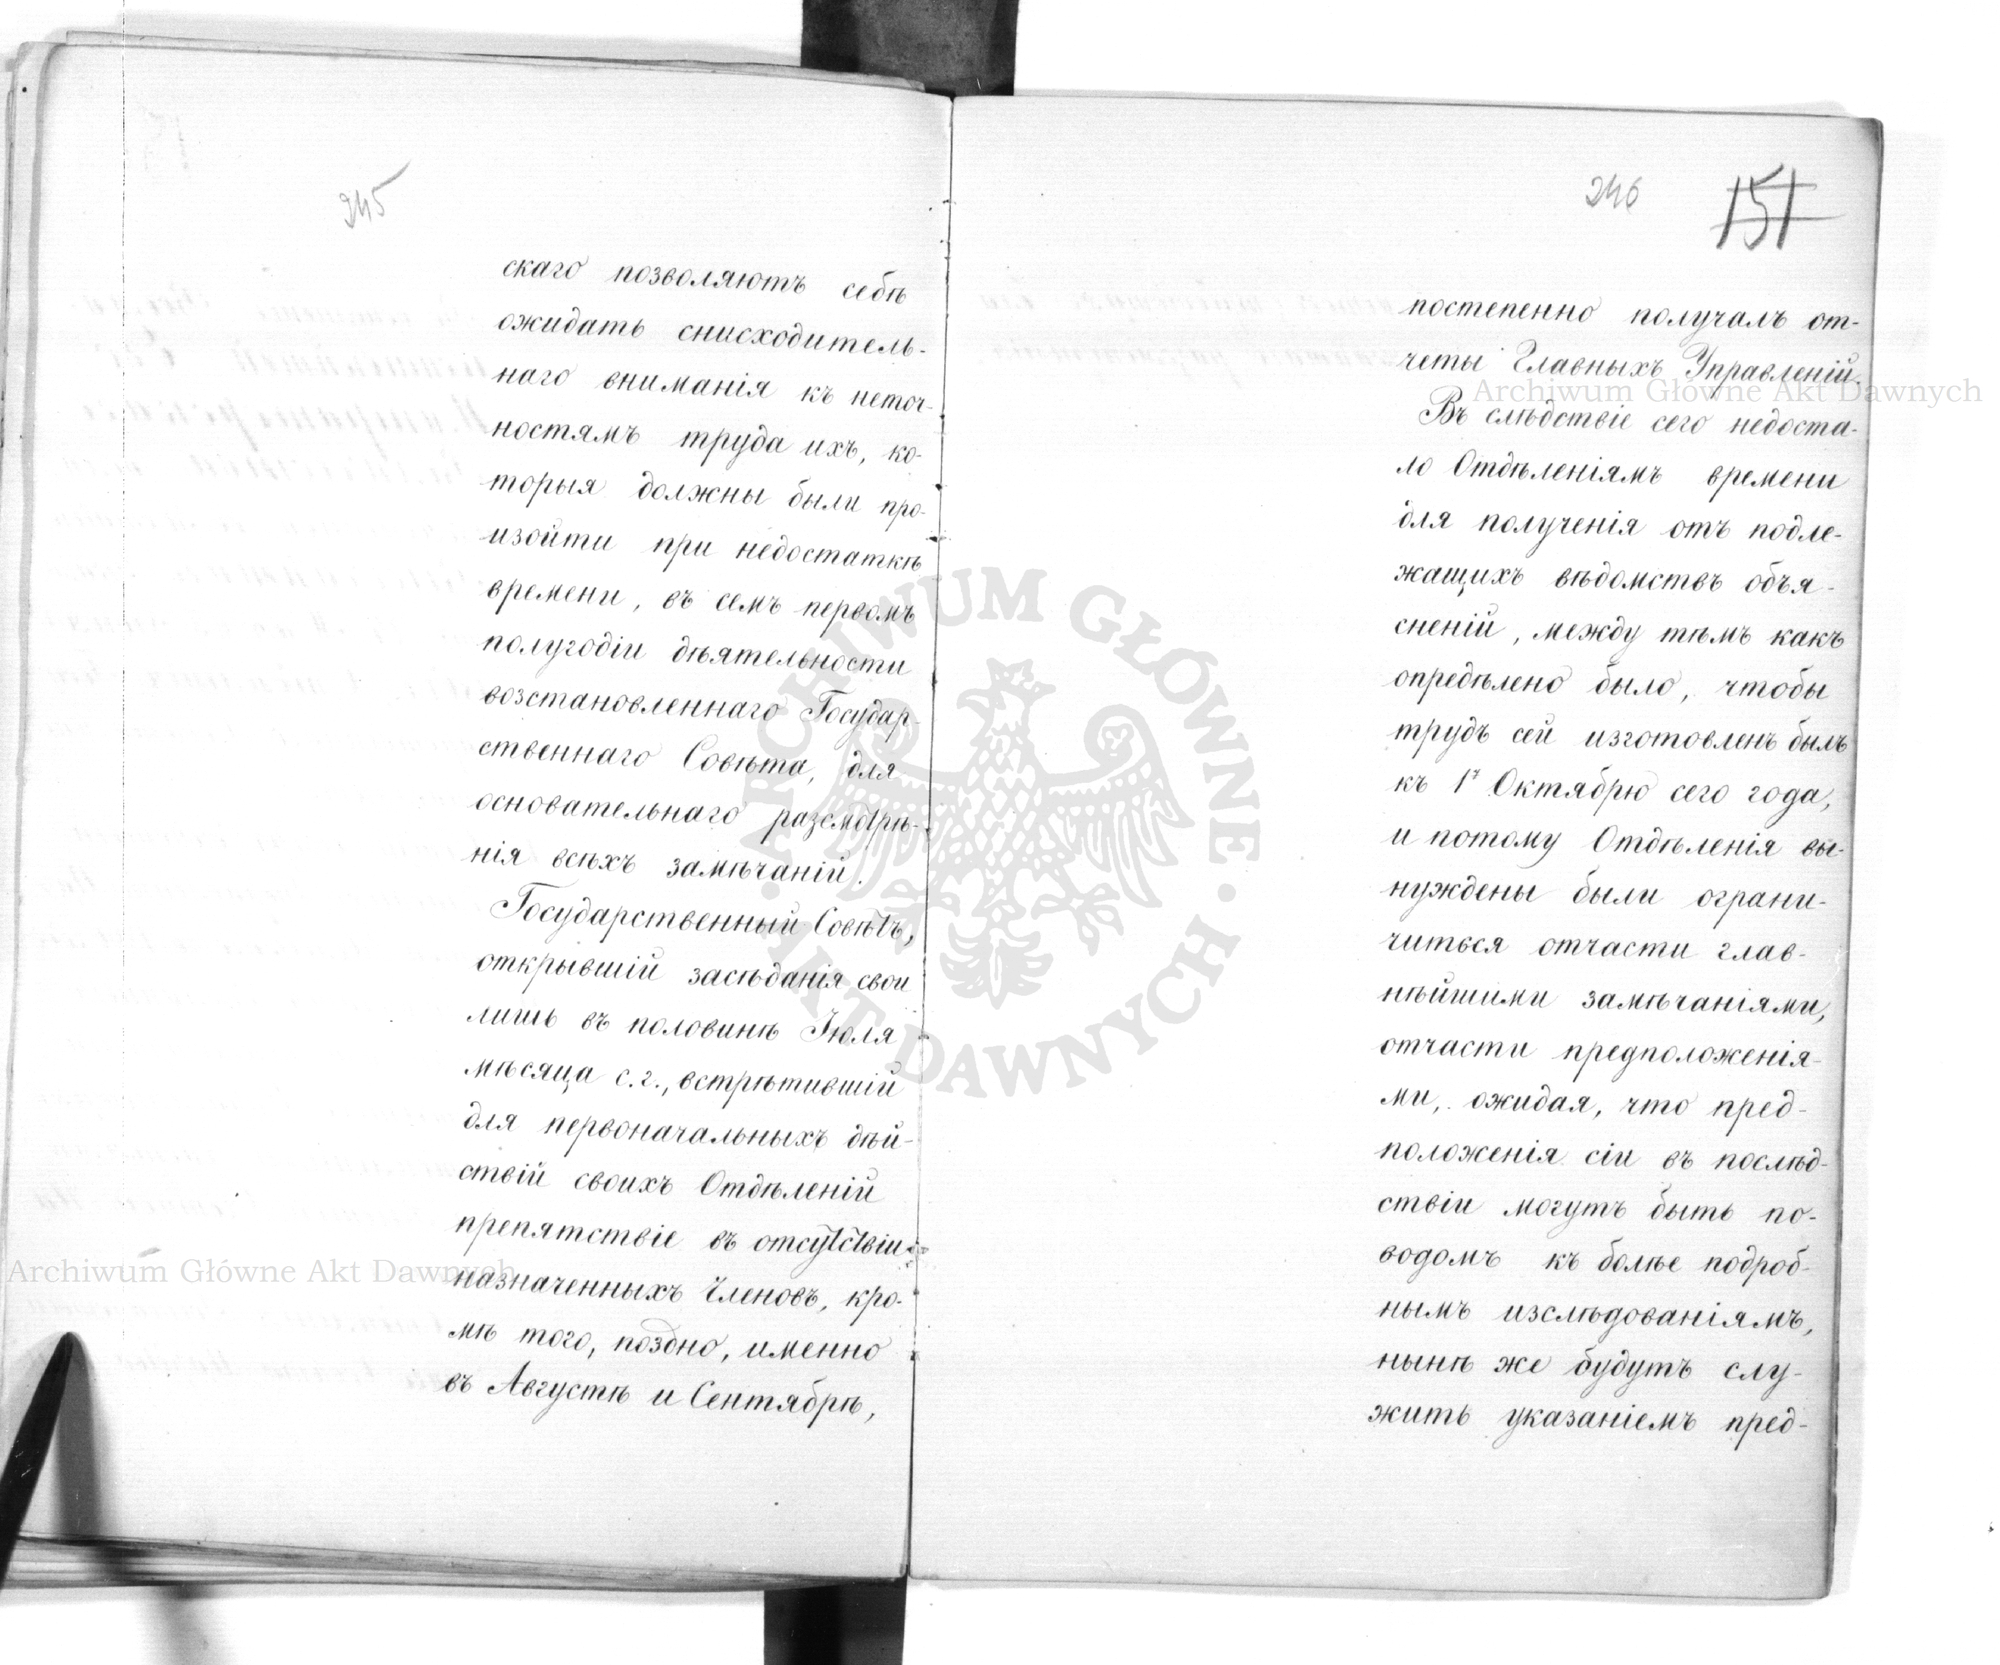 245
скаго позволяютъ себѣ
ожидать снисходитель-
наго вниманія къ неточ-
ностямъ труда ихъ, ко-
торыя должны были про-
изойти при недостаткѣ
времени, въ семъ первомъ
полугодіи дѣятельности
возстановленнаго Государ-
ственнаго Совѣта, для
основательнаго разсмотрѣ-
нія всѣхъ замѣчаній.
Государственный Совѣтъ,
открывшій засѣданія свои
лишь въ половинѣ Іюля
мѣсяца с.г., встрѣтившій
для первоначальныхъ дѣй-
ствій своихъ Отдѣленій
препятствіе въ отсутствіи
назначенныхъ Членовъ, кро-
мѣ того, поздно, именно
въ Августѣ и Сентябрѣ,
246 151
постепенно получалъ от-
четы Главныхъ Управленій.
Въ слѣдствіе сего недоста-
ло Отдѣленіямъ времени
для полученія отъ подле-
жащихъ вѣдомствъ объя-
сненій, между тѣмъ какъ
опредѣлено было, чтобы
трудъ сей изготовленъ былъ
къ 1у Октябрю сего года,
и потому Отдѣленія вы-
нуждены были ограни-
читься отчасти глав-
нѣйшими замѣчаніями,
отчасти предположенія-
ми, ожидая, что пред-
положенія сіи въ послѣд-
ствіи могутъ быть по-
водомъ къ болѣе подроб-
нымъ изслѣдованіямъ,
нынѣ же будутъ слу-
жить указаніемъ пред-
Archiwum Główne Akt Dawnych
Archiwum Główne Akt Dawnych
ARCHIWUM GŁÓWNE AKT DAWNYCH